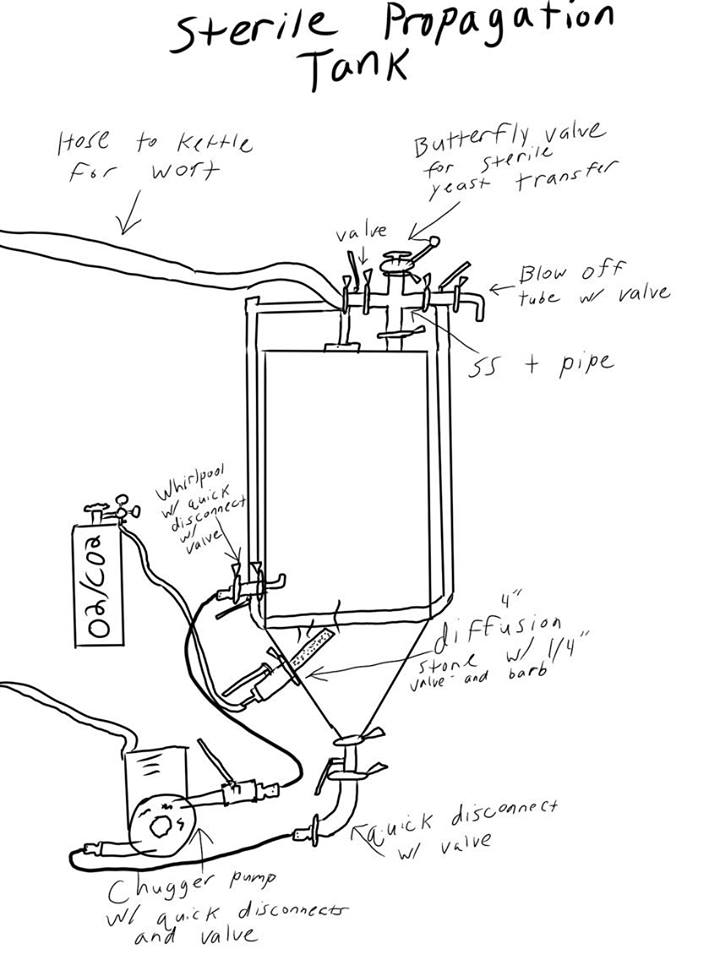 Sterile Propagation
Tank
Hose to Kettle
For Wort
Butterfly valve
for sterile
yeast transfer
valve
Blow off
tube w/ valve
SS + pipe
Whirlpool
w/ quick
disconnect
w/
valve
O2/CO2
4"
diffusion
stone w/ 1/4"
valve and barb
quick disconnect
w/ valve
Chugger pump
w/ quick disconnects
and valve